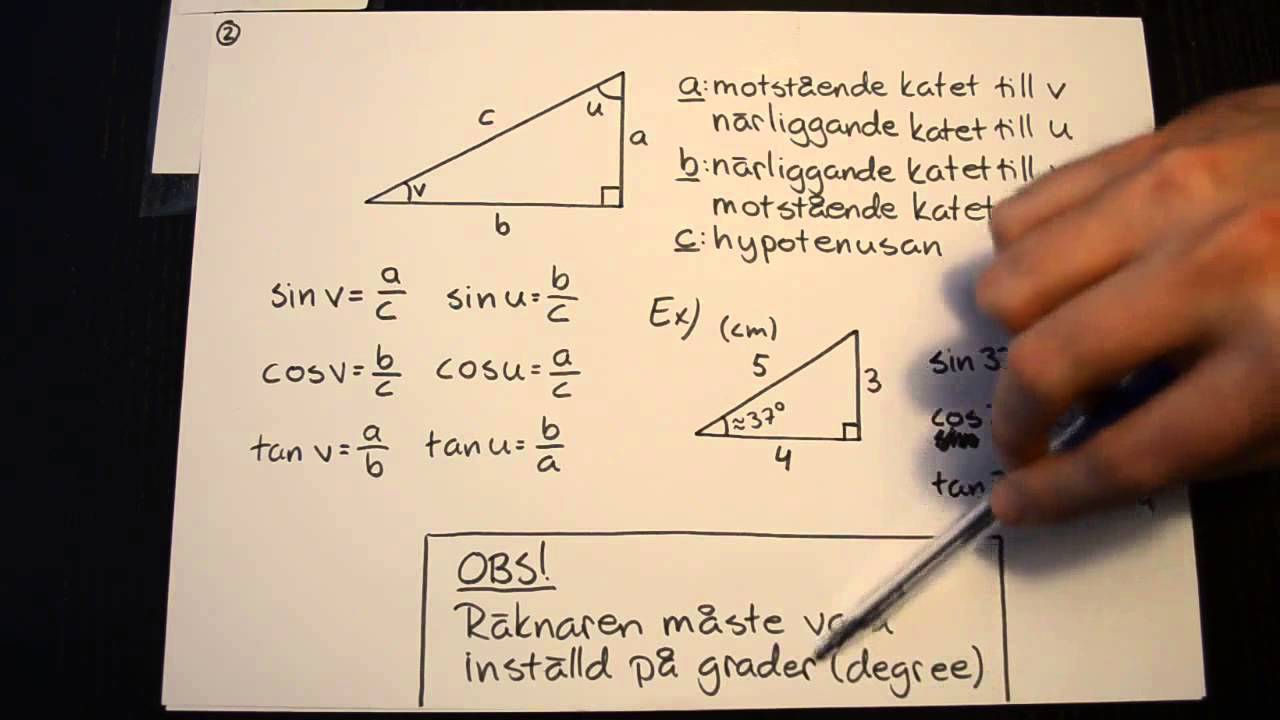 2
c
u
a
v
b
a: motstående katet till v
närliggande katet till u
b: närliggande katet till
motstående katet
c: hypotenusan
sin v = a/c sin u = b/c
cos v = b/c cos u = a/c
tan v = a/b tan u = b/a
Ex) (cm)
5
3
≈37°
4
sin
cos
tan
OBS!
Räknaren måste
inställd på grader (degree)